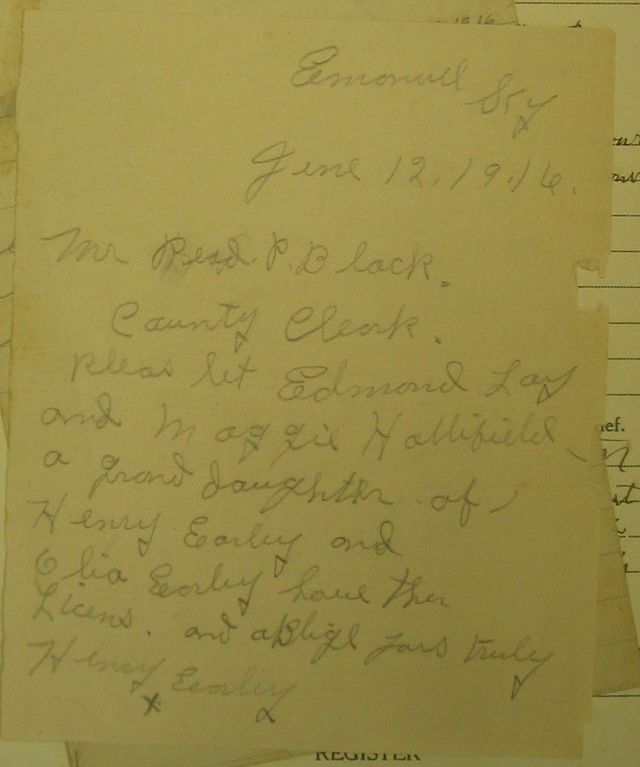 1916
Emanuell
Ky
June 12, 1916.
Mr Read. P. Black.
County Cleark.
Pleas let Edmond Lay
and Maggie Hallifield
a grand daughter of
Henry Earley and
Olia Earley have ther
Licens. and ablige yars truly
Henry Earley
x
ef.
REGISTER